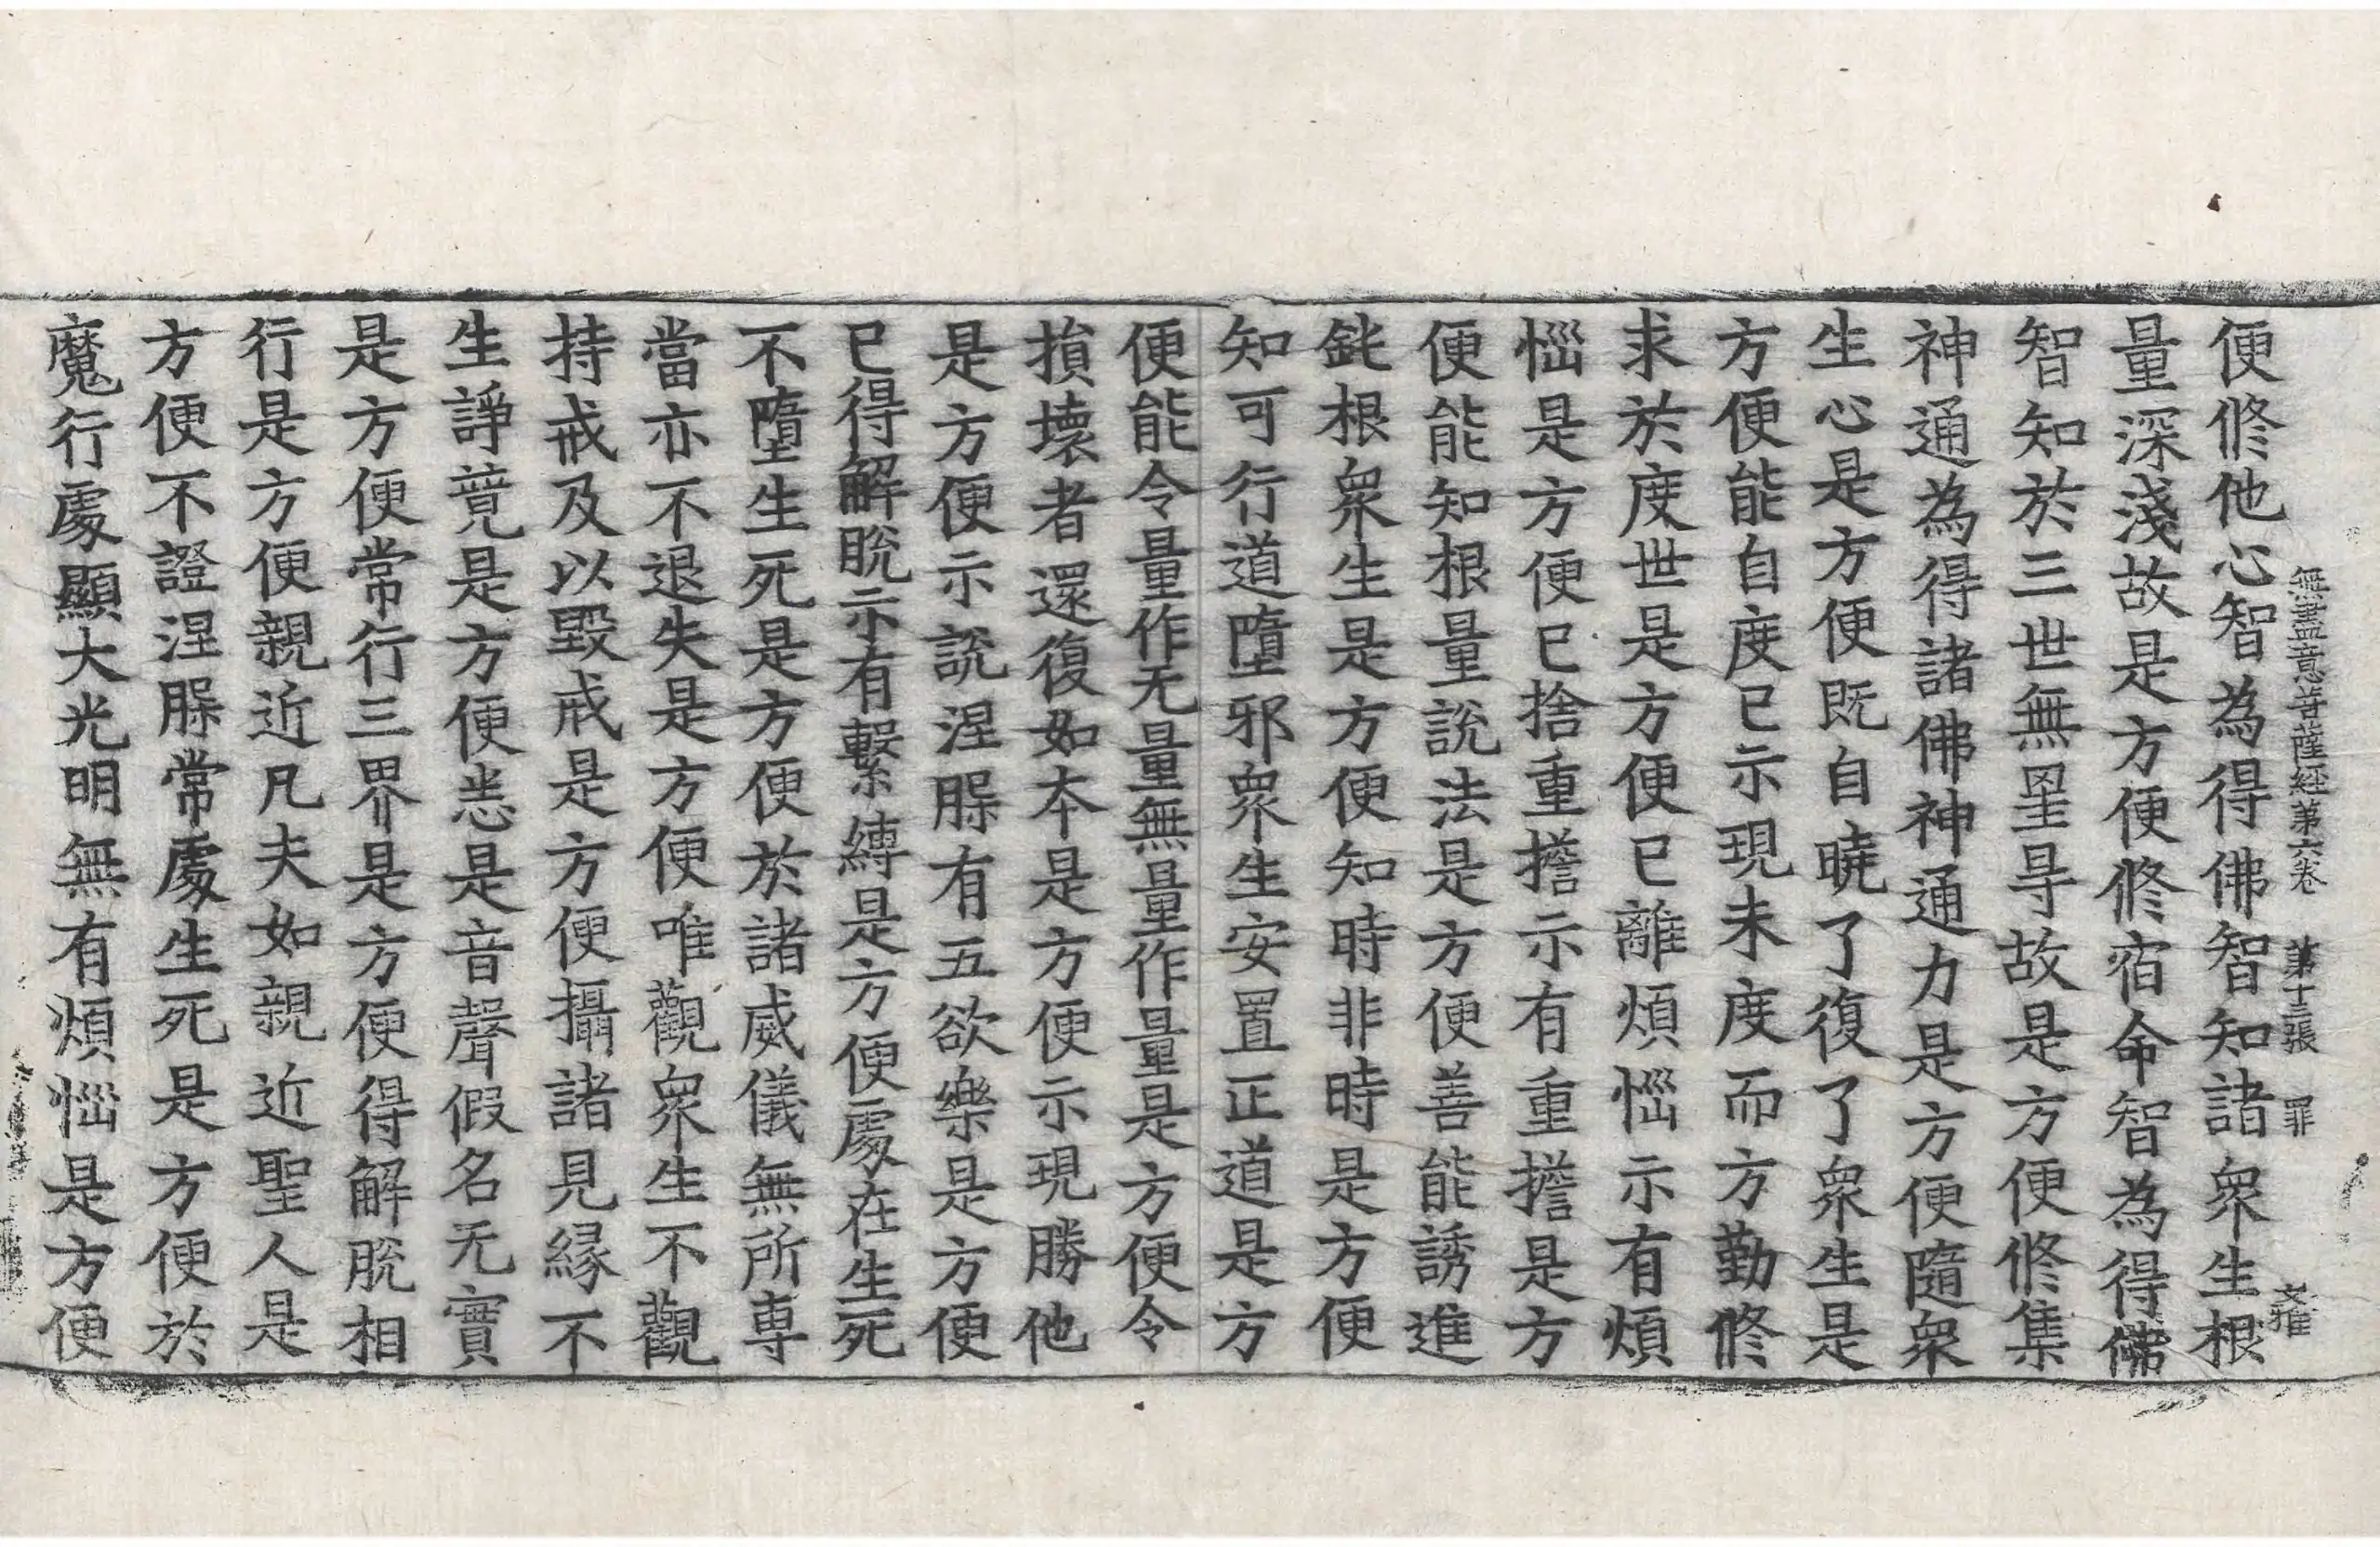 無盡意菩薩經第六卷 第十三張 罪 文雅
便修他心智為得佛智知諸衆生根
量深淺故是方便修宿命智為得佛
智知於三世無罣㝵故是方便修集
神通為得諸佛神通力是方便隨衆
生心是方便既自曉了復了衆生是
方便能自度已示現未度而方勤修
求於度世是方便已離煩惱示有煩
惱是方便已捨重擔示有重擔是方
便能知根量說法是方便善能誘進
鈍根衆生是方便知時非時是方便
知可行道墮邪衆生安置正道是方
便能令量作无量無量作量是方便令
損壞者還復如本是方便示現勝他
是方便示說涅槃有五欲樂是方便
已得解脫示有繫縛是方便處在生死
不墮生死是方便於諸威儀無所専
當亦不退失是方便唯觀衆生不觀
持戒及以毀戒是方便攝諸見縁不
生諍竟是方便恙是音聲假名无實
是方便常行三界是方便得解脫相
行是方便親近凡夫如親近聖人是
方便不證涅槃常處生死是方便於
魔行處顯大光明無有煩惱是方便